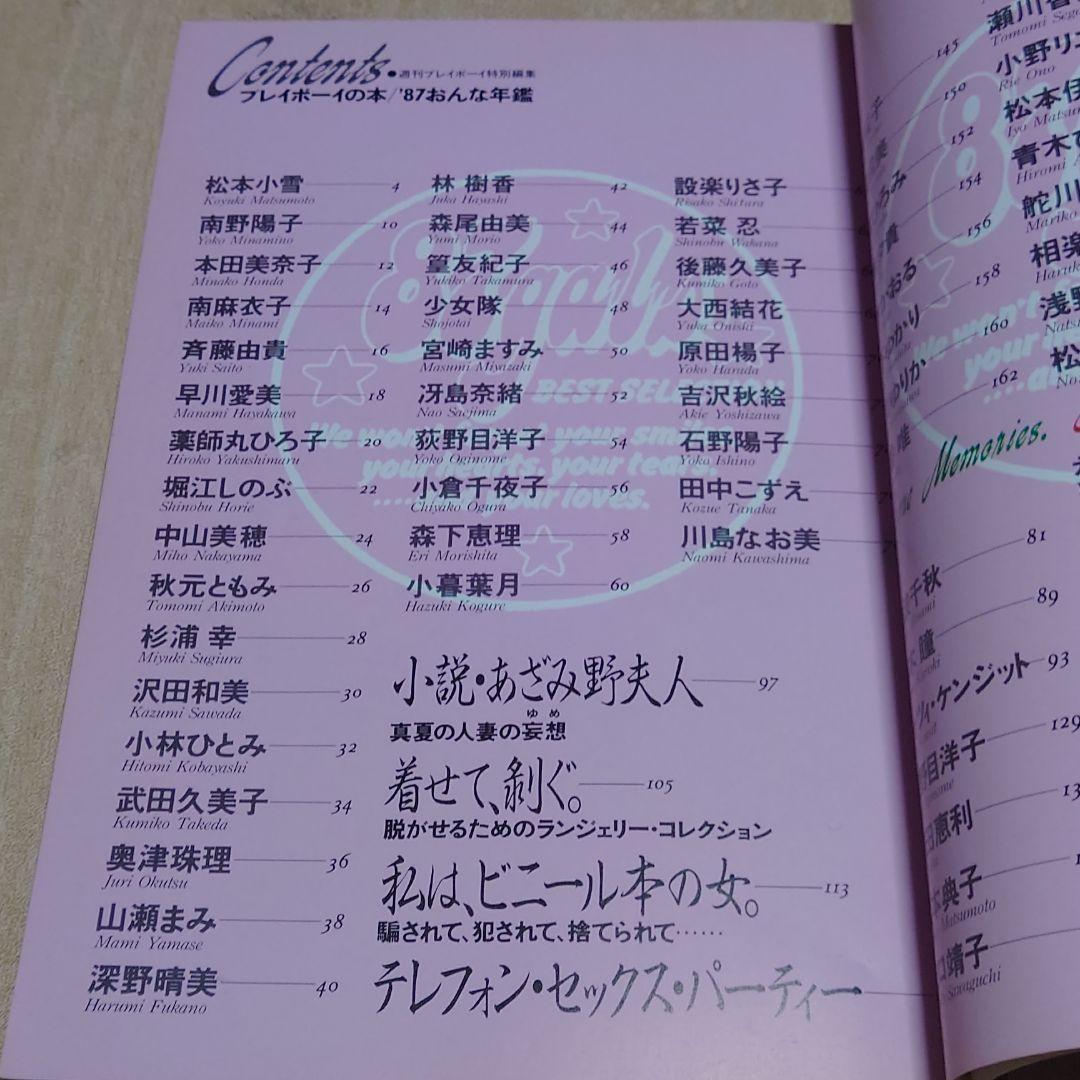 Contents
●週刊プレイボーイ特別編集
プレイボーイの本/'87おんな年鑑
松本小雪 4
Koyuki Matsumoto
南野陽子 10
Yoko Minamino
本田美奈子 12
Minako Honda
南麻衣子 14
Maiko Minami
斉藤由貴 16
Yuki Saito
早川愛美 18
Manami Hayakawa
薬師丸ひろ子 20
Hiroko Yakushimaru
堀江しのぶ 22
Shinobu Horie
中山美穂 24
Miho Nakayama
秋元ともみ 26
Tomomi Akimoto
杉浦 幸 28
Miyuki Sugiura
沢田和美 30
Kazumi Sawada
小林ひとみ 32
Hitomi Kobayashi
武田久美子 34
Kumiko Takeda
奥津珠理 36
Juri Okutsu
山瀬まみ 38
Mami Yamase
深野晴美 40
Harumi Fukano
林 樹香 42
Juka Hayashi
森尾由美 44
Yumi Morio
篁友紀子 46
Yukiko Takamura
少女隊 48
Shojotai
宮崎ますみ 50
Masumi Miyazaki
冴島奈緒 52
Nao Saejima
荻野目洋子 54
Yoko Oginome
小倉千夜子 56
Chiyako Ogura
森下恵理 58
Eri Morishita
小暮葉月 60
Hazuki Kogure
設楽りさ子
Risako Shitara
若菜 忍
Shinobu Wakana
後藤久美子
Kumiko Goto
大西結花
Yuka Onishi
原田楊子
Yoko Harada
吉沢秋絵
Akie Yoshizawa
石野陽子
Yoko Ishino
田中こずえ
Kozue Tanaka
川島なお美
Naomi Kawashima
小説・あざみ野夫人 97
真夏の人妻の妄想
ゆめ
着せて、剝ぐ。 105
脱がせるためのランジェリー・コレクション
私は、ビニール本の女。 113
騙されて、犯されて、捨てられて……
テレフォン・セックス・パーティー
BEST SELE
145
150
152
154
156
158
160
162
小野リ
Rie Ono
松本
青木
Hiromi
舵川
Mariko
相楽
浅野
松
Memories.
81
千秋
89
瞳
ケンジット 93
目洋子 129
恵利
典子
Matsumoto
靖子
Sawaguchi